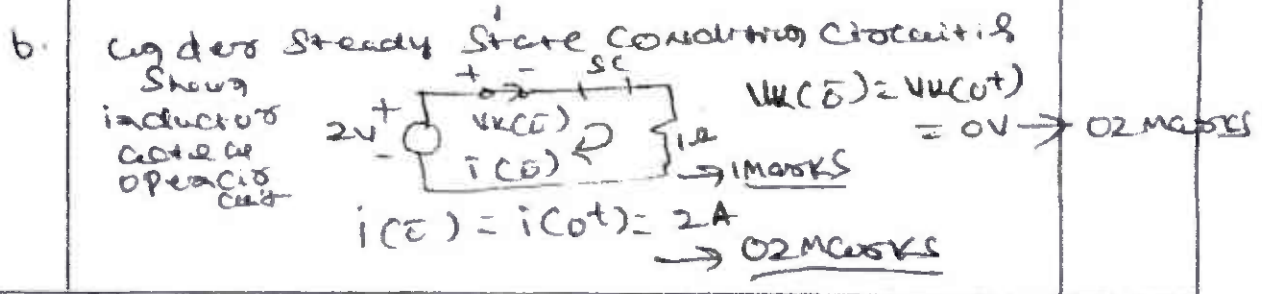 b. under Steady State Condition Circuit is
Shown
inductor
act as
open cir
cuit
+ - SC
2V + -
VK(0-)
i(0-)
1Ω
→ 1 Marks
VK(0-) = VK(0+)
= 0V → 02 Marks
i(0-) = i(0+) = 2A
→ 02 Marks